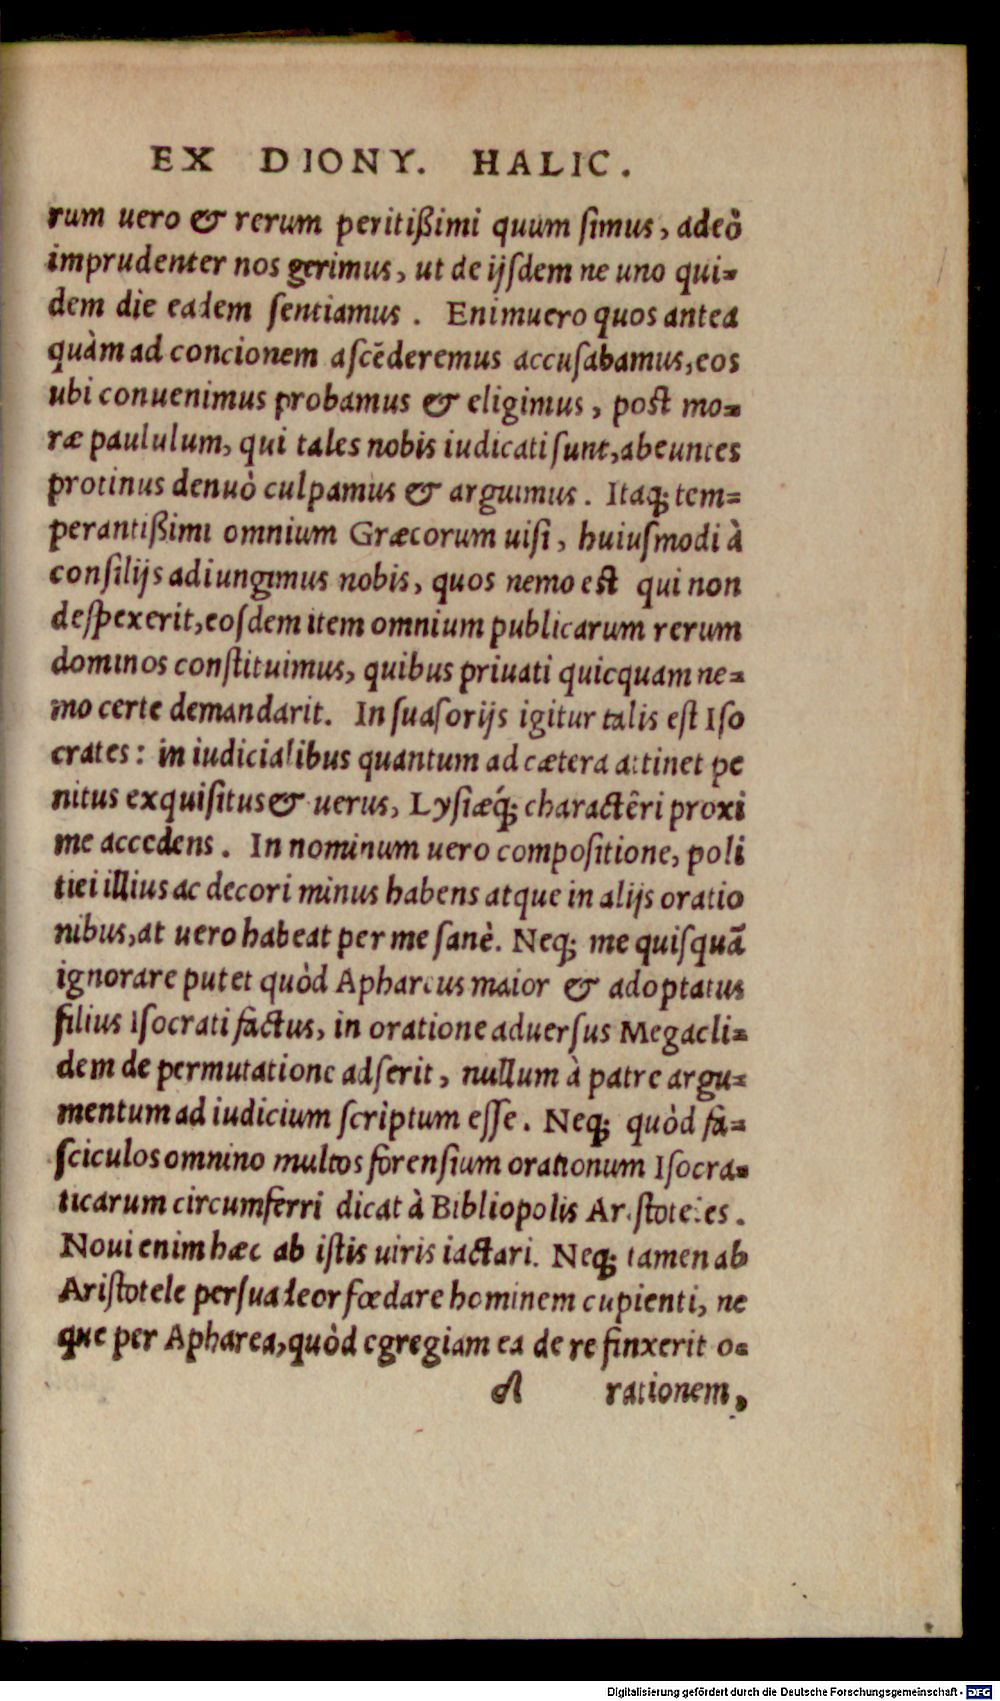 EX DIONY. HALIC.
rum uero & rerum peritißimi quum ſimus, adeò
imprudenter nos gerimus, ut de ijſdem ne uno qui-
dem die eadem ſentiamus. Enimuero quos antea
quàm ad concionem aſcēderemus accuſabamus, eos
ubi conuenimus probamus & eligimus, poſt mo-
ræ paululum, qui tales nobis iudicati ſunt, abeuntes
protinus denuò culpamus & arguimus. Itaq; tem-
perantißimi omnium Græcorum uiſi, huiuſmodi à
conſilijs adiungimus nobis, quos nemo eſt qui non
deſpexerit, eoſdem item omnium publicarum rerum
dominos conſtituimus, quibus priuati quicquam ne-
mo certe demandarit. In ſuaſorijs igitur talis eſt Iſo
crates: in iudicialibus quantum ad cætera attinet pe
nitus exquiſitus & uerus, Lyſiæq́; charactêri proxi
me accedens. In nominum uero compoſitione, poli
tiei illius ac decori minus habens atque in alijs oratio
nibus, at uero habeat per me ſanè. Neq; me quiſquā
ignorare putet quòd Aphareus maior & adoptatus
filius Iſocrati factus, in oratione aduerſus Megacli-
dem de permutatione adſerit, nullum à patre argu-
mentum ad iudicium ſcriptum eſſe. Neq; quòd fa-
ſciculos omnino multos forenſium orationum Iſocra-
ticarum circumferri dicat à Bibliopolis Ariſtoteles.
Noui enim hæc ab iſtis uiris iactari. Neq; tamen ab
Ariſtotele perſuadeor fœdare hominem cupienti, ne
que per Apharea, quòd egregiam ea de re finxerit o-
rationem,
Digitalisierung gefördert durch die Deutsche Forschungsgemeinschaft - DFG